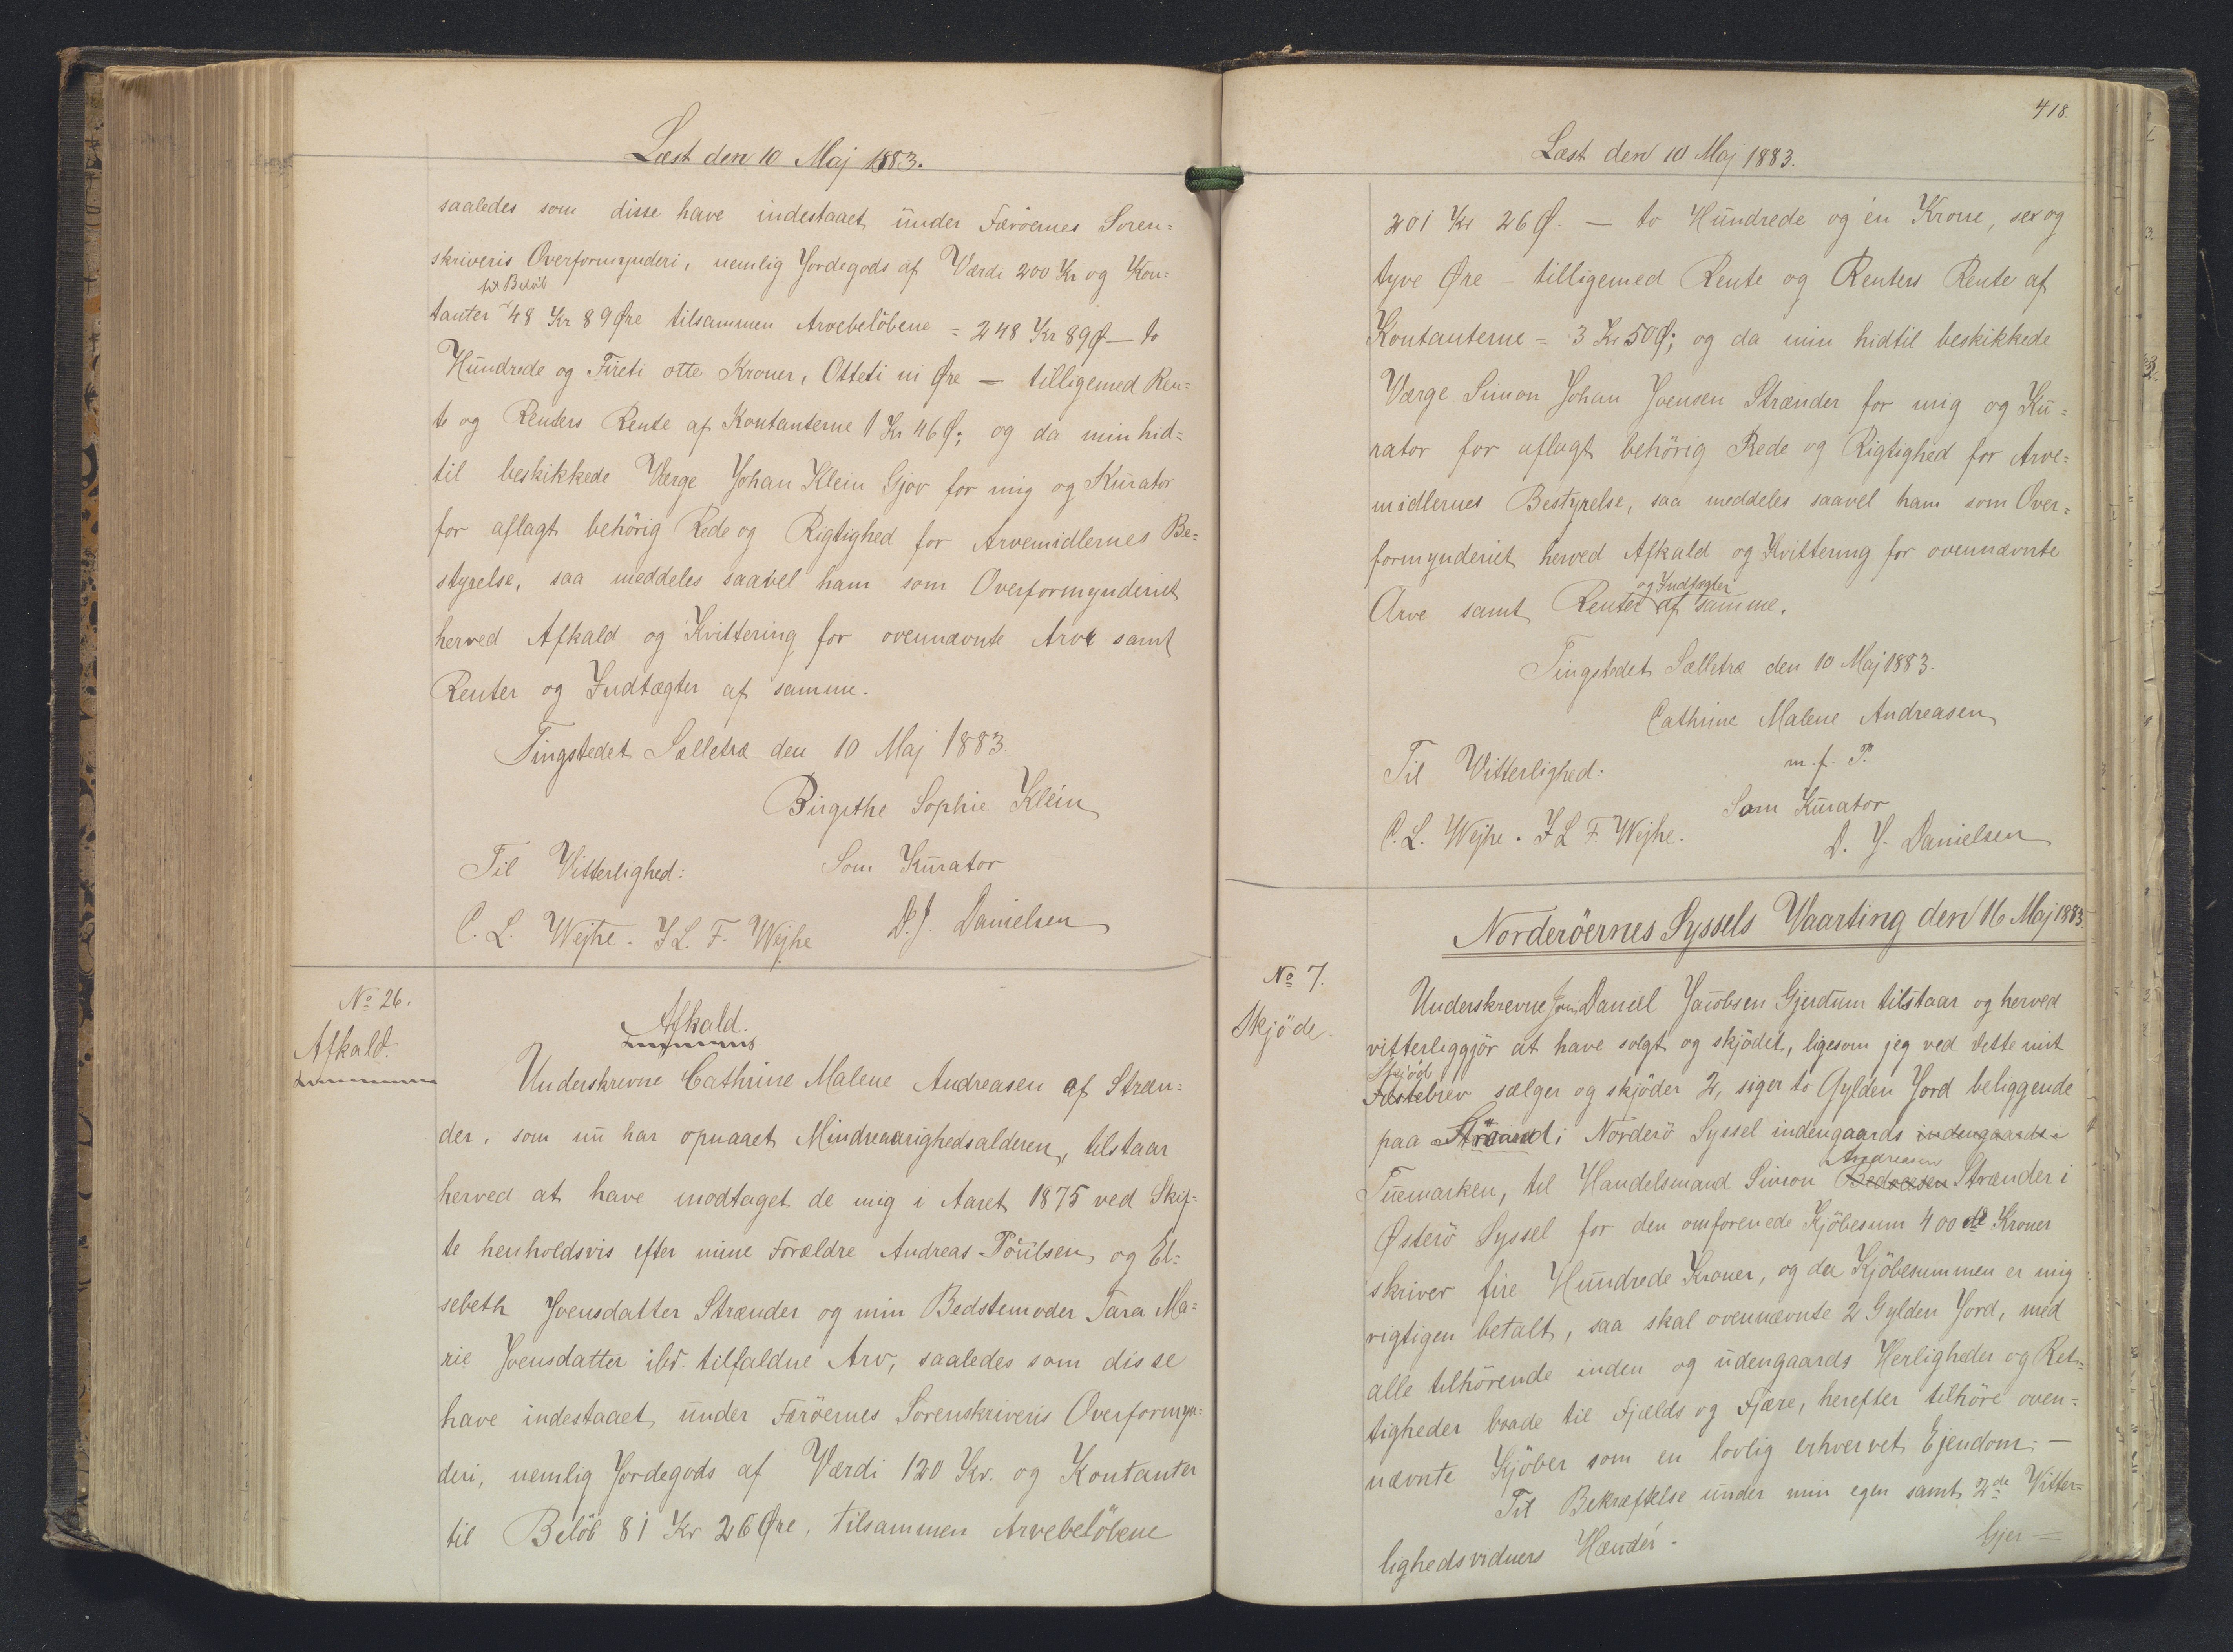 Læst den 10 Maj 1883.
saaledes som disse have indestaaet under Færöernes Soren=
skriveris Overformynderi, nemlig Jordegods af Værdi 200 Kr og Kon=
til Belöb
tanter 48 Kr 89 Øre tilsammen Arvebelöbene = 248 Kr 89 Ø — to
Hundrede og Fireti otte Kroner, Otteti ni Øre — tilligemed Ren=
te og Renters Rente af Kontanterne 1 Kr 46 Ø; og da min hid=
til beskikkede Værge Johan Klein Gjov for mig og Kurator
for aflagt behörig Rede og Rigtighed for Arvemidlernes Be=
styrelse, saa meddeles saavel ham som Overformynderiet
herved Afkald og Kvittering for ovennævnte Arve samt
Renter og Indtægter af samme.
Tingstedet Sælletræ den 10 Maj 1883.
Birgithe Sophie Klein
Til Vitterlighed: Som Kurator
C. L. Wejhe. J L. F. Wejhe D. J. Danielsen
No 26.
Afkald.
Afkald.
Underskrevne Cathrine Malene Andreasen af Stræn=
der, som nu har opnaaet Mindreaarighedsalderen, tilstaar
herved at have modtaget de mig i Aaret 1875 ved Skif=
te henholdsvis efter mine Forældre Andreas Poulsen og El=
sebeth Joensdatter Strænder og min Bedstemoder Tara Ma=
rie Joensdatter ibd. tilfaldne Arv, saaledes som disse
have indestaaet under Færöernes Sorenskriveris Overformyn=
deri, nemlig Jordegods af Værdi 120 Kr. og Kontanter
til Belöb 81 Kr 26 Øre, tilsammen Arvebelöbene
418.
Læst den 10 Maj 1883.
201 Kr 26 Ø. — to Hundrede og én Krone, sex og
tyve Øre — tilligemed Rente og Renters Rente af
Kontanterne = 3 Kr 50 Ø; og da min hidtil beskikkede
Værge Simon Johan Joensen Strænder for mig og Ku=
rator for aflagt behörig Rede og Rigtighed for Arve=
midlernes Bestyrelse, saa meddeles saavel ham som Over=
formynderiet herved Afkald og Kvittering for ovennævnte
og Indtægter
Arve samt Renter af samme.
Tingstedet Sælletræ den 10 Maj 1883.
Cathrine Malene Andreasen
Til Vitterlighed: m. f. P.
Som Kurator
C. L. Wejhe. J L F. Wejhe. D. J. Danielsen
Norderöernes Syssels Vaarting den 16 Maj 1883.
No 7.
Skjöde.
Underskrevne Joen Daniel Jacobsen Gjerdum tilstaar og herved
vitterliggjör at have solgt og skjödet, ligesom jeg ved dette mit
Skjöde
Fæstebrev sælger og skjöder 2, siger to Gylden Jord beliggende
paa Strand i Norderö Syssel indengaards indengaards i
Andreasen
Tuemarken, til Handelsmand Simon Strænder i
Østerö Syssel for den omforenede Kjöbesum 400 de Kroner
skriver fire Hundrede Kroner, og da Kjöbesummen er mig
rigtigen betalt, saa skal ovennævnte 2 Gylden Jord, med
alle tilhörende inden og udengaards Herligheder og Ret=
tigheder baade til Fjelds og Fjære, herefter tilhöre oven=
nævnte Kjöber som en lovlig erhvervet Ejendom. —
Til Bekræftelse under min egen samt 2de Vitter=
lighedsvidners Hænder.
Gjer=